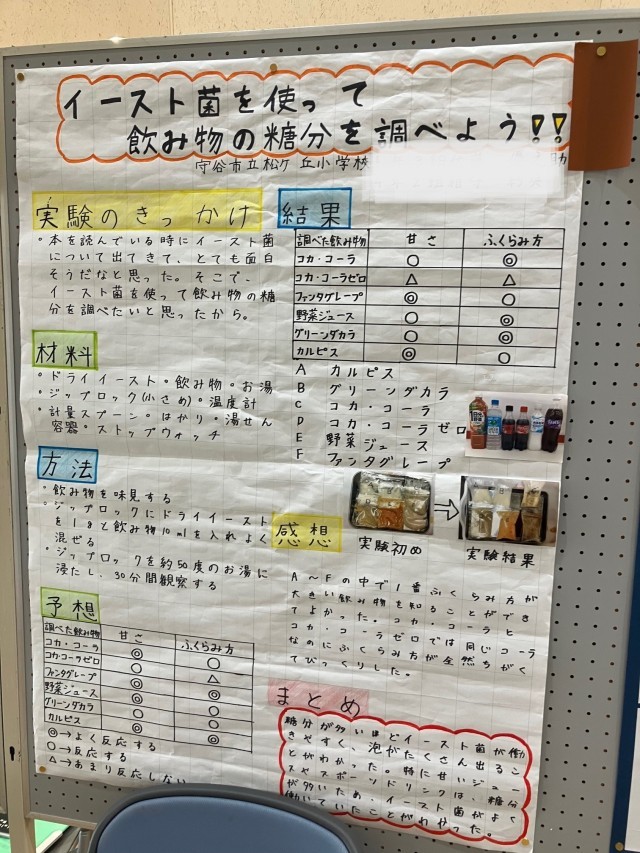 イースト菌を使って
飲み物の糖分を調べよう!!
守谷市立松ケ丘小学校
実験のきっかけ
・本を読んでいる時にイースト菌
について出てきて、とても面白
そうだなと思った。そこで、
イースト菌を使って飲み物の糖
分を調べたいと思ったから。
材料
・ドライイースト・飲み物・お湯
・ジップロック(小さめ)・温度計
・計量スプーン・はかり・湯せん
容器・ストップウォッチ
方法
・飲み物を味見する
・ジップロックにドライイースト
を1gと飲み物10mlを入れよく
混ぜる
・ジップロックを約50度のお湯に
浸たし、30分間観察する
予想
調べた飲み物 甘さ ふくらみ方
コカ・コーラ ◎ ○
コカ・コーラゼロ ○ △
ファンタグレープ ◎ ◎
野菜ジュース ○ ○
グリーンダカラ ○ ○
カルピス ◎ ◎
◎→よく反応する
○→反応する
△→あまり反応しない
結果
調べた飲み物 甘さ ふくらみ方
コカ・コーラ ○ ◎
コカ・コーラゼロ △ △
ファンタグレープ ◎ ○
野菜ジュース ○ ◎
グリーンダカラ ○ ◎
カルピス ◎ ○
A カルピス
B グリーンダカラ
C コカ・コーラ
D コカ・コーラゼロ
E 野菜ジュース
F ファンタグレープ
実験初め
実験結果
感想
A〜Fの中で1番ふくらみ方が
大きい飲み物を知ることができ
てよかった。コカ・コーラと
コカ・コーラゼロでは同じコーラ
なのにふくらみ方が全然ちがく
てびっくりした。
まとめ
糖分が多いほどイースト菌が働
きやすく、泡がたくさん出るこ
とがわかった。特に甘いジュー
スやスポーツドリンクは、糖分
が多いため、イースト菌がよく
働いていたことがわかった。